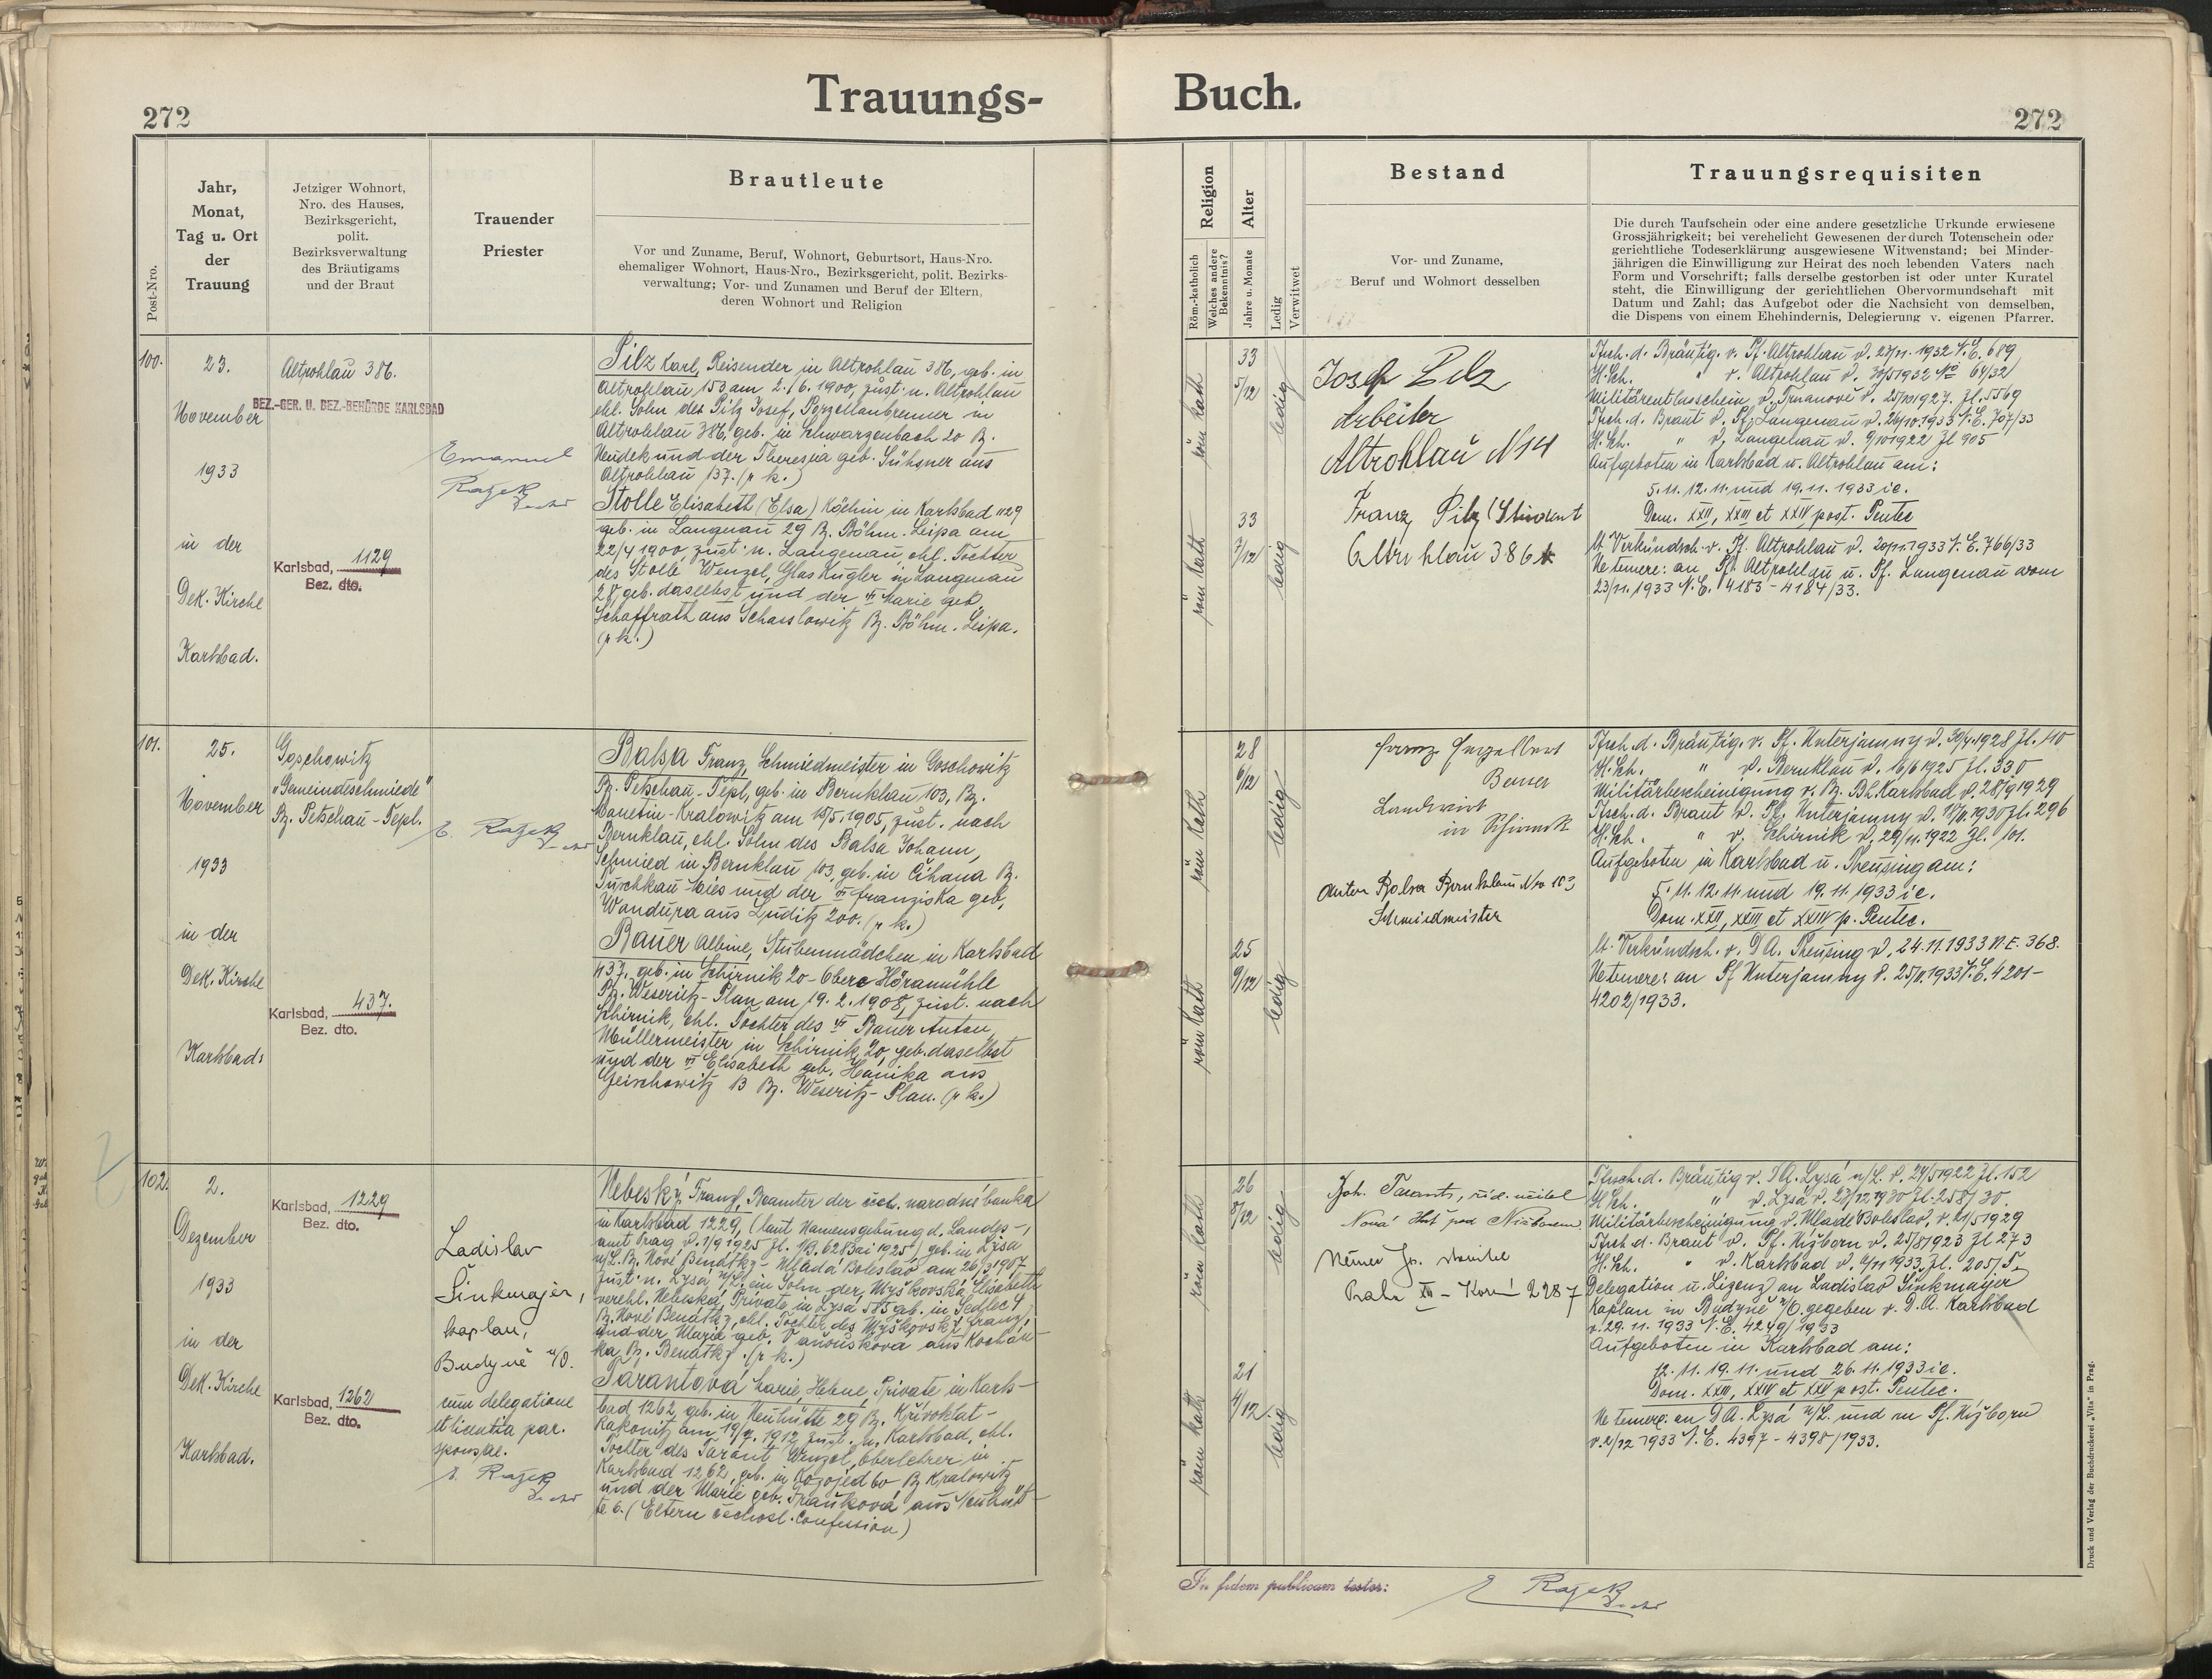 Trauungs- Buch.
272
272
Post-Nro.
Jahr,
Monat,
Tag u. Ort
der
Trauung
Jetziger Wohnort,
Nro. des Hauses,
Bezirksgericht,
polit.
Bezirksverwaltung
des Bräutigams
und der Braut
Trauender
Priester
Brautleute
Vor und Zuname, Beruf, Wohnort, Geburtsort, Haus-Nro.
ehemaliger Wohnort, Haus-Nro., Bezirksgericht, polit. Bezirks-
verwaltung; Vor- und Zunamen und Beruf der Eltern,
deren Wohnort und Religion
Religion
Röm.-katholisch
Welches andere
Bekenntnis?
Alter
Jahre u. Monate
Ledig
Verwitwet
Bestand
Vor- und Zuname,
Beruf und Wohnort desselben
Trauungsrequisiten
Die durch Taufschein oder eine andere gesetzliche Urkunde erwiesene
Grossjährigkeit; bei verehelicht Gewesenen der durch Totenschein oder
gerichtliche Todeserklärung ausgewiesene Witwenstand; bei Minder-
jährigen die Einwilligung zur Heirat des noch lebenden Vaters nach
Form und Vorschrift; falls derselbe gestorben ist oder unter Kuratel
steht, die Einwilligung der gerichtlichen Obervormundschaft mit
Datum und Zahl; das Aufgebot oder die Nachsicht von demselben,
die Dispens von einem Ehehindernis, Delegierung v. eigenen Pfarrer.
100.
23.
November
1933
in der
Dek. Kirche
Karlsbad.
Altrohlau 386.
BEZ.-GER. U. BEZ.-BEHÖRDE KARLSBAD
Karlsbad, 1129
Bez. dto.
Emanuel
Pilz Karl, Reisender in Altrohlau 386, geb. in
Altrohlau 153 am 2./6. 1900, zust. n. Altrohlau
ehl. Sohn des Pilz Josef, Porzellanbrenner in
Altrohlau 386, geb. in Schwarzenbach 20 Bz.
Neudek und der Theresia geb. aus
Altrohlau 137. (r k.)
Stolle Elisabeth (Elsa) Köchin in Karlsbad 1129
geb. in Langenau 29 Bz. Böhm. Leipa am
22/4 1900, zust. n. Langenau ehl. Tochter
des Stolle Wenzel, Glas Kugler in Langenau
28 geb. daselbst und der Marie geb.
Schaffrath aus Schasslowitz Bz. Böhm. Leipa.
(r k.)
röm kath
33
5/12
ledig
röm kath
33
7/12
ledig
Josef Pilz
Arbeiter
Altrohlau N 14
Franz Pilz (Student
Altrohlau 386
Tfsch. d. Bräutig. v. Pf. Altrohlau v. 23/11. 1932 N.E. 689
H.Sch. " v. Altrohlau v. 30/5 1932 No 64/32
Militärentlasschein v. v. 25/10 1927. Zl. 5569
Tfsch. d. Braut v. Pf. Langenau v. 26/10. 1933 N.E. 707/33
H.Sch. " v. Langenau v. 9/10 1922 Zl 905
Aufgeboten in Karlsbad u. Altrohlau am:
5. 11. 12. 11. und 19. 11. 1933 ie.
Dom. XXII, XXIII et XXIV post. Pentec
lt. Verkündsch. v. Pf. Altrohlau v. 20/11. 1933 N.E. 766/33
Ne temere: an Pf. Altrohlau u. Pf. Langenau vom
23/11. 1933 N.E. 4183 - 4184/33.
101.
25.
November
1933
in der
Dek. Kirche
Karlsbad.
Goschowitz
"Gemeindeschmiede"
Bz. Petschau - Tepl.
Karlsbad, 437.
Bez. dto.
Balsa Franz, Schmiedmeister in Goschowitz
Bz. Petschau - Tepl, geb. in Bernklau 103, Bz.
Manetin - Kralowitz am 15/5. 1905, zust. nach
Bernklau, ehl. Sohn des Balsa Johann,
Schmied in Bernklau 103, geb. in Čihana Bz.
Tuschkau - Mies und der Franziska geb.
Wondura aus Luditz 200. (r k.)
Bauer Albine, Stubenmädchen in Karlsbad
437, geb. in Schirnik 20 - Obere Höramühle
Bz. Weseritz - Plan am 19. 2. 1908, zust. nach
Schirnik, ehl. Tochter des Bauer Anton,
Müllermeister in Schirnik 20 geb. daselbst
und der Elisabeth geb. Hanika aus
Geischowitz 13 Bz. Weseritz - Plan. (r k.)
röm kath
28
6/12
ledig
röm kath
25
9/12
ledig
Landwirt
in
Anton Balsa Bernklau Nro 103
Schmiedmeister
Tfsch. d. Bräutig. v. Pf. Unterjamny v. 30/4. 1928 Zl. 110
H.Sch. " v. Bernklau v. 16/6 1925 Zl. 330
Militärbescheinigung v. Bz. Bh. Karlsbad v. 28/9 1929
Tfsch. d. Braut v. Pf. Unterjamny v. 1930 Zl. 296
H.Sch. " v. Schirnik v. 29/11. 1922 Zl. 101.
Aufgeboten in Karlsbad u. Theusing am:
5. 11. 12. 11. und 19. 11. 1933 ie.
Dom. XXII, XXIII et XXIV p. Pentec.
lt. Verkündsch. v. DA. Theusing v. 24. 11. 1933 N.E. 368.
Ne temere: an Pf Unterjamny v. 25/11. 1933 N.E. 4201 -
4202/1933.
102.
2.
Dezember
1933
in der
Dek. Kirche
Karlsbad.
Karlsbad, 1229
Bez. dto.
Karlsbad, 1262
Bez. dto.
Ladislav
Šinkmajer,
kaplan,
Budyně n/O.
cum delegatione
et licentia par.
sponsae.
Nebeský Franz, Beamter der národní banka
in Karlsbad 1229, (laut Namensgebung d. Landes-
amt Prag v. 1/9 1925 geb. in Lysá
n/L. Bz. Nové Benátky - Mladá Boleslav am 26/3 1907
zust. n. Lysá n/L, ein Sohn der Myškovská Elisabeth
verehl. Nebeská, Private in Lysá 585 geb. in Sedlec 4
Bz. Nové Benátky, ehl. Tochter des Myškovský Franz,
und der Marie geb. Vaňousková aus Kochán-
ka Bz. Benátky. (r k.)
Tarantová Marie, Helene, Private in Karls-
bad 1262, geb. in Neuhütte 29 Bz. Křivoklat -
Rakonitz am 19/7. 1912, zust. n. Karlsbad, ehl.
Tochter des Tarant Wenzel, Oberlehrer in
Karlsbad 1262, geb. in Kozojed 60 Bz Kralowitz
und der Marie geb. aus Neuhüt-
te 6. (Eltern čechosl. Confession)
röm kath
26
8/12
ledig
röm kath
21
4/12
ledig
Joh. Tarant, říd. učitel
Nová Huť pod Nižborem
Praha XII - 2287
Tfsch. d. Bräutig v. DA. Lysá n/L. v. 24/5 1922 Zl. 152
H.Sch. " v. Lysá v. 23/12 1930 Zl. 258/30.
Militärbescheinigung v. Mladé Boleslav, v. 21/5 1929
Tfsch. d. Braut v. Pf. Nižborn v. 25/8 1923 Zl 273
H.Sch. " v. Karlsbad v. 4/11 1933,
Delegation u. Lizenz an Ladislav Šinkmajer
Kaplan in Budyně n/O. gegeben v. D.A. Karlsbad
v. 29. 11. 1933 N.E. 4249/1933
Aufgeboten in Karlsbad am:
12. 11. 19. 11. und 26. 11. 1933 ie.
Dom. XXIII, XXIV et XXV post. Pentec.
Ne temere: an DA. Lysá n/L. und an Pf. Nižborn
v. 2/12 1933 N.E. 4397 - 4398/1933.
In fidem publicam testor:
Druck und Verlag der Buchdruckerei „Vita" in Prag.